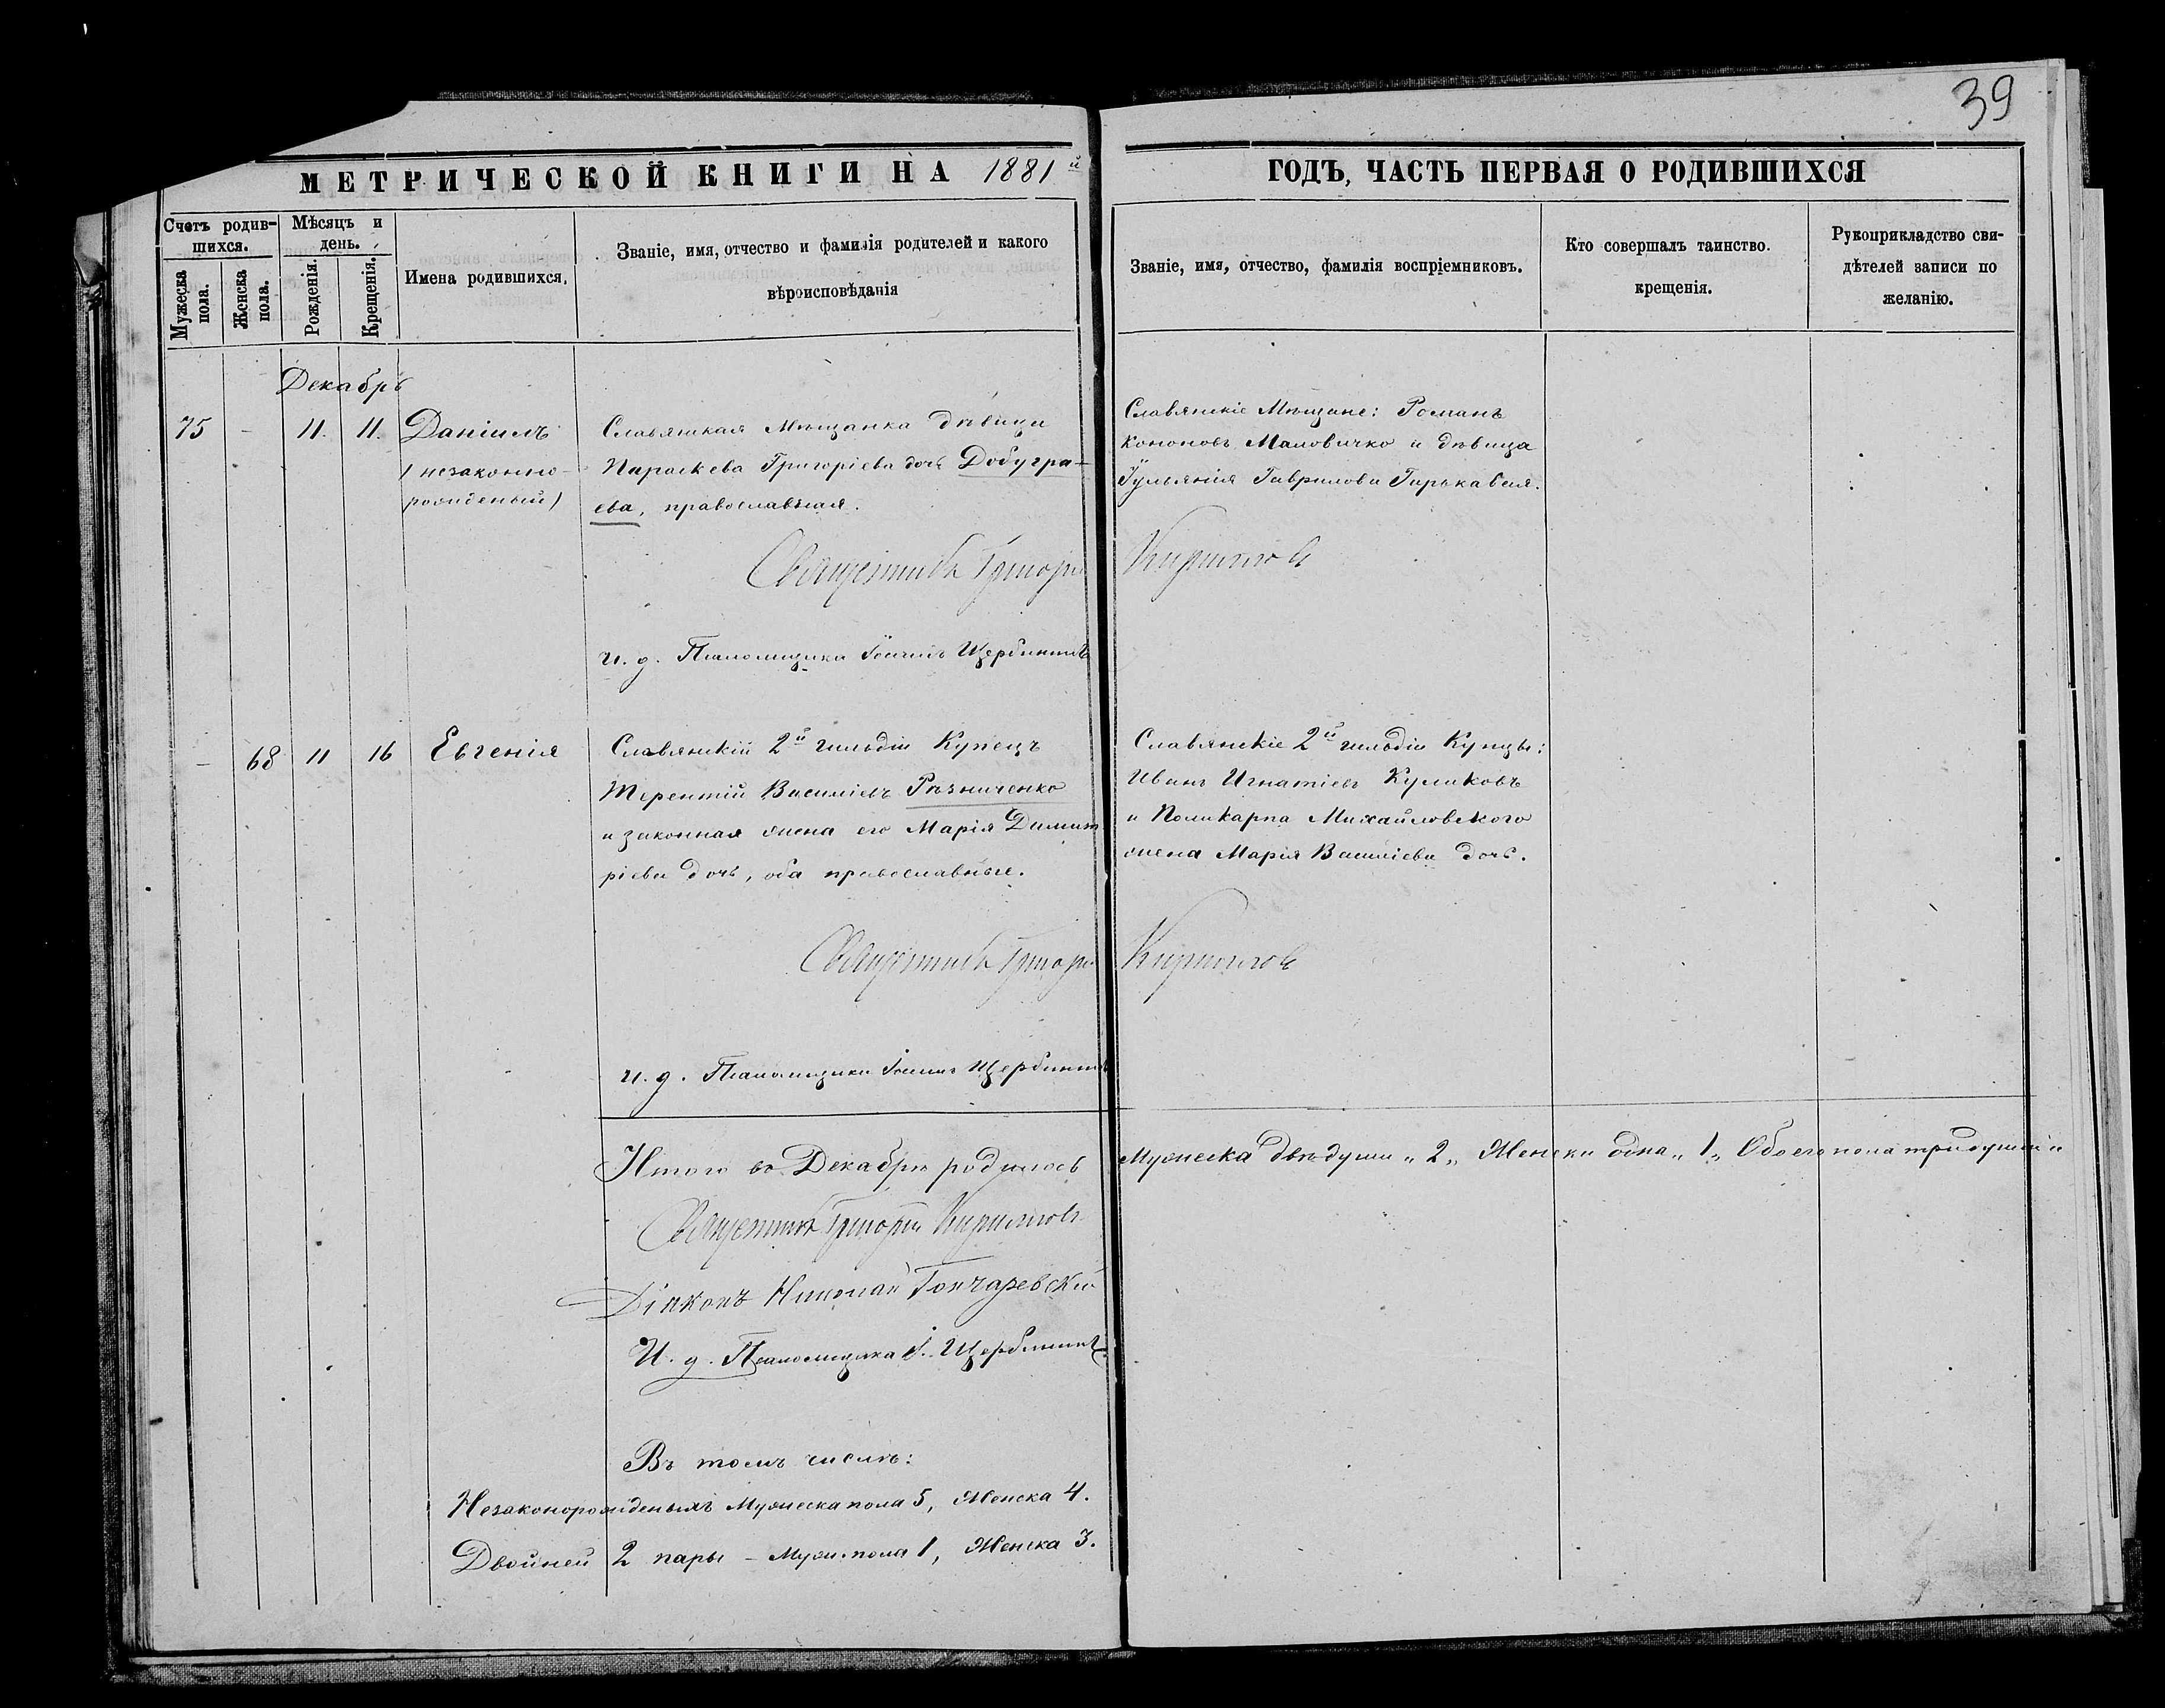 39
МЕТРИЧЕСКОЙ КНИГИ НА 1881й
ГОДЪ, ЧАСТЬ ПЕРВАЯ О РОДИВШИХСЯ
Счетъ родив-
шихся.
Мужеска
пола.
Женска
пола.
Мѣсяцъ и
день.
Рожденія.
Крещенія.
Имена родившихся.
Званіе, имя, отчество и фамилія родителей и какого
вѣроисповѣданія
Званіе, имя, отчество, фамилія воспріемниковъ.
Кто совершалъ таинство.
крещенія.
Рукоприкладство сви-
дѣтелей записи по
желанію.
Декабрь
75 - 11. 11. Даніилъ
(незаконно-
рожденый)
Славянская Мѣщанка дѣвица
Параскева Григоріева дочь Добугра-
ева, православная.
Славянскіе Мѣщане: Романъ
Кононовъ Маловичко и дѣвица
Іуліянія Гаврилова Гирькавая.
Священникъ Григорій Кириловъ
И. д. Псаломщика Іоаннъ Щербининъ
- 68 11 16 Евгенія
Славянскій 2й гильдіи Купецъ
Терентій Василіевъ Рѣзниченко
и законная жена его Марія Димит
ріева дочь, оба православные.
Славянскіе 2й гильдіи Купцы:
Иванъ Игнатіевъ Куликовъ
и Поликарпа Михайловского
жена Марія Василіева дочь.
Священникъ Григорій Кириловъ
И. д. Псаломщика Іоаннъ Щербининъ
Итого въ Декабрѣ родилось Мужеска двѣ души „2„ Женска одна „1„ Обоего пола три души
Священникъ Григорій Кириловъ
Діаконъ Николай Гончаревскій
И. д. Псаломщика І. Щербининъ
Въ томъ числѣ:
Незаконорожденыхъ Мужеска пола 5, Женска 4.
Двойней 2 пары - Муж. пола 1, Женска 3.